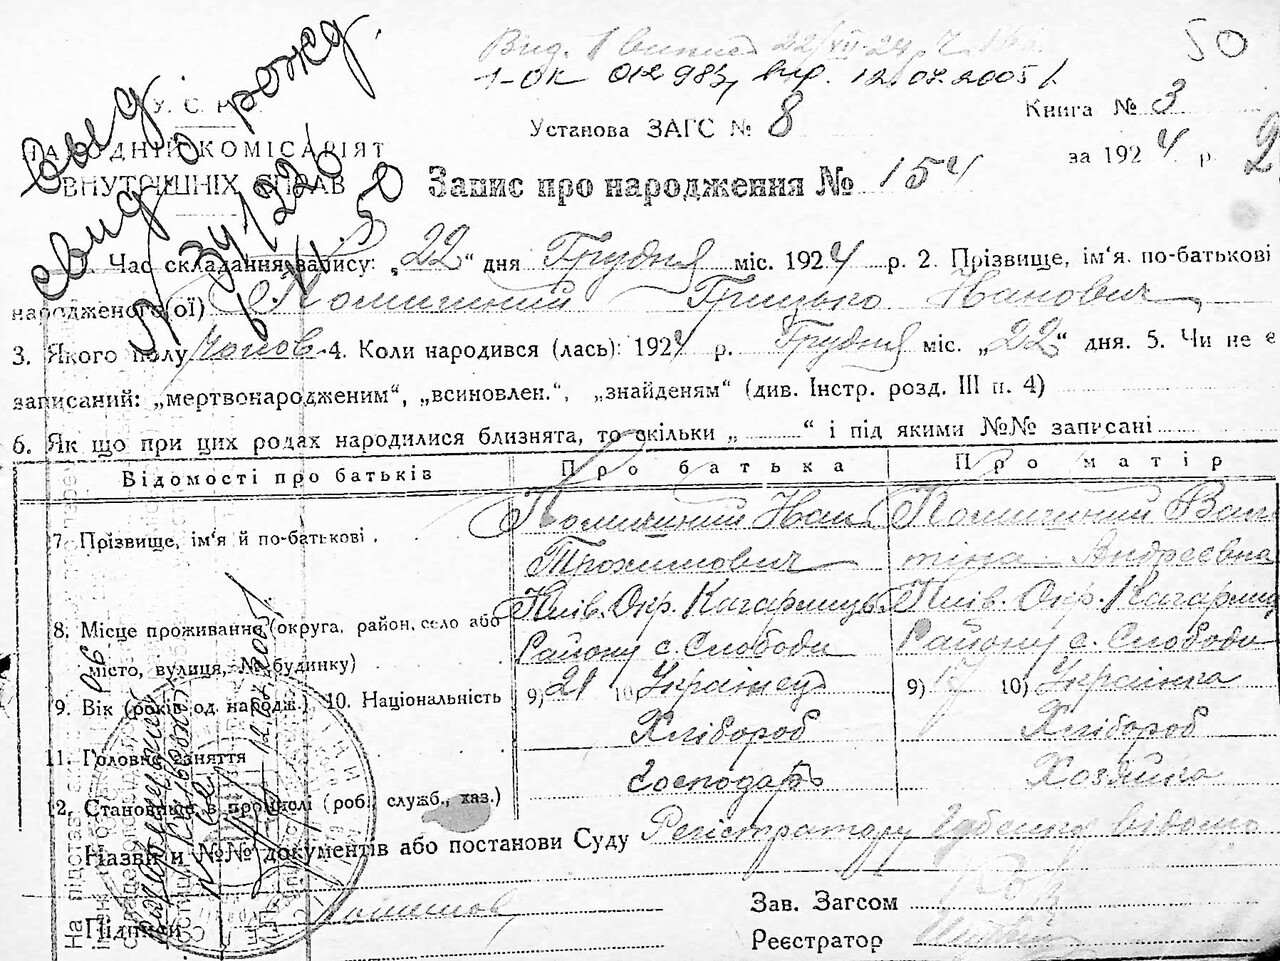 50
Вид. 1 випис 22/VII-24 р.
1-ОК 012983, вид. 12.07.2005 р.
Выд. свид. о рожд.
N 34/1220
Книга № 3
У. С. Р. Р.
Установа ЗАГС № 8
за 1924 р.
НАРОДНІЙ КОМІСАРІЯТ
ВНУТРІШНІХ СПРАВ
Запис про народження № 154
1. Час складання запису: „22“ дня Грудня міс. 1924 р. 2. Прізвище, ім'я, по-батькові
народженого (ої) Помишний Грицько Іванович
3. Якого полу чолов. 4. Коли народився (лась): 1924 р. Грудня міс. „22“ дня. 5. Чи не є
записаний: „мертвонародженим“, „всиновлен.“, „знайденям“ (див. Інстр. розд. III п. 4)
6. Як що при цих родах народилися близнята, то скільки „ “ і під якими №№ записані
Відомості про батьків Про батька Про матір
7. Прізвище, ім'я й по-батькові Іван Андреевна
Трохимович
8. Місце проживання (округа, район, село або місто, вулиця, № будинку) Київ. Окр. Кагарлиць. Київ. Окр. Кагарлиц
Району с. Слободи Району с. Слободи
9. Вік (років од. народж.) 10. Національність 9) 21 10) Українец 9) 17 10) Українка
11. Головне заняття Хлібороб Хлібороб
12. Становище в промислі (роб., служб., хаз.) Господарь Хозяйка
Назви и №№ документів або постанови Суду Регістратору
Підписи
Зав. Загсом
Реєстратор